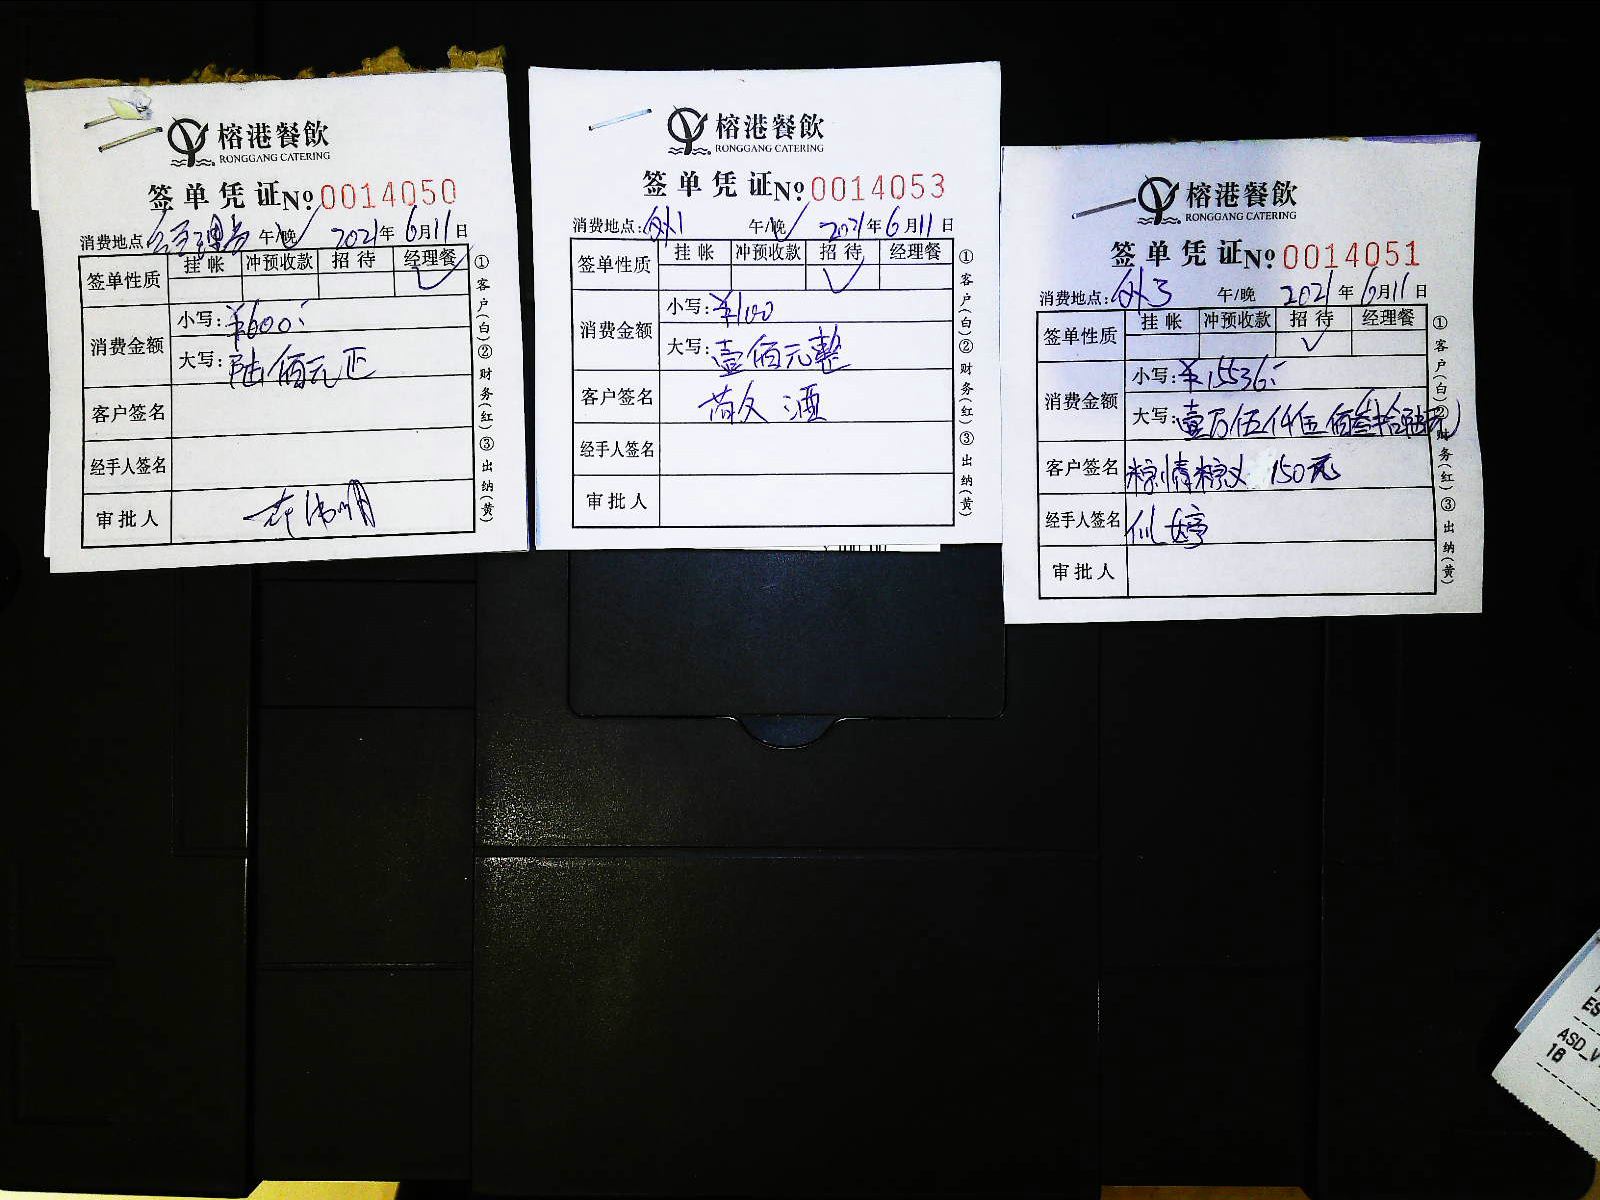 榕港餐飲
RONGGANG CATERING
签单凭证 No 0014050
消费地点: 午/晚 2021年6月11日
签单性质 挂帐 冲预收款 招待 经理餐
✓
消费金额
小写: ¥600:
大写: 陆佰元正
客户签名
经手人签名
审批人
①客户(白)②财务(红)③出纳(黄)
榕港餐飲
RONGGANG CATERING
签单凭证 No 0014053
消费地点: 外1 午/晚 2021年6月11日
签单性质 挂帐 冲预收款 招待 经理餐
✓
消费金额
小写: ¥100
大写: 壹佰元整
客户签名 酒
经手人签名
审批人
①客户(白)②财务(红)③出纳(黄)
榕港餐飲
RONGGANG CATERING
签单凭证 No 0014051
消费地点: 外3 午/晚 2021年6月11日
签单性质 挂帐 冲预收款 招待 经理餐
✓
消费金额
小写: ¥15536:
大写: 壹万伍仟伍佰叁拾陆元
客户签名 150元
经手人签名
审批人
①客户(白)②财务(红)③出纳(黄)
ASD_V
1B